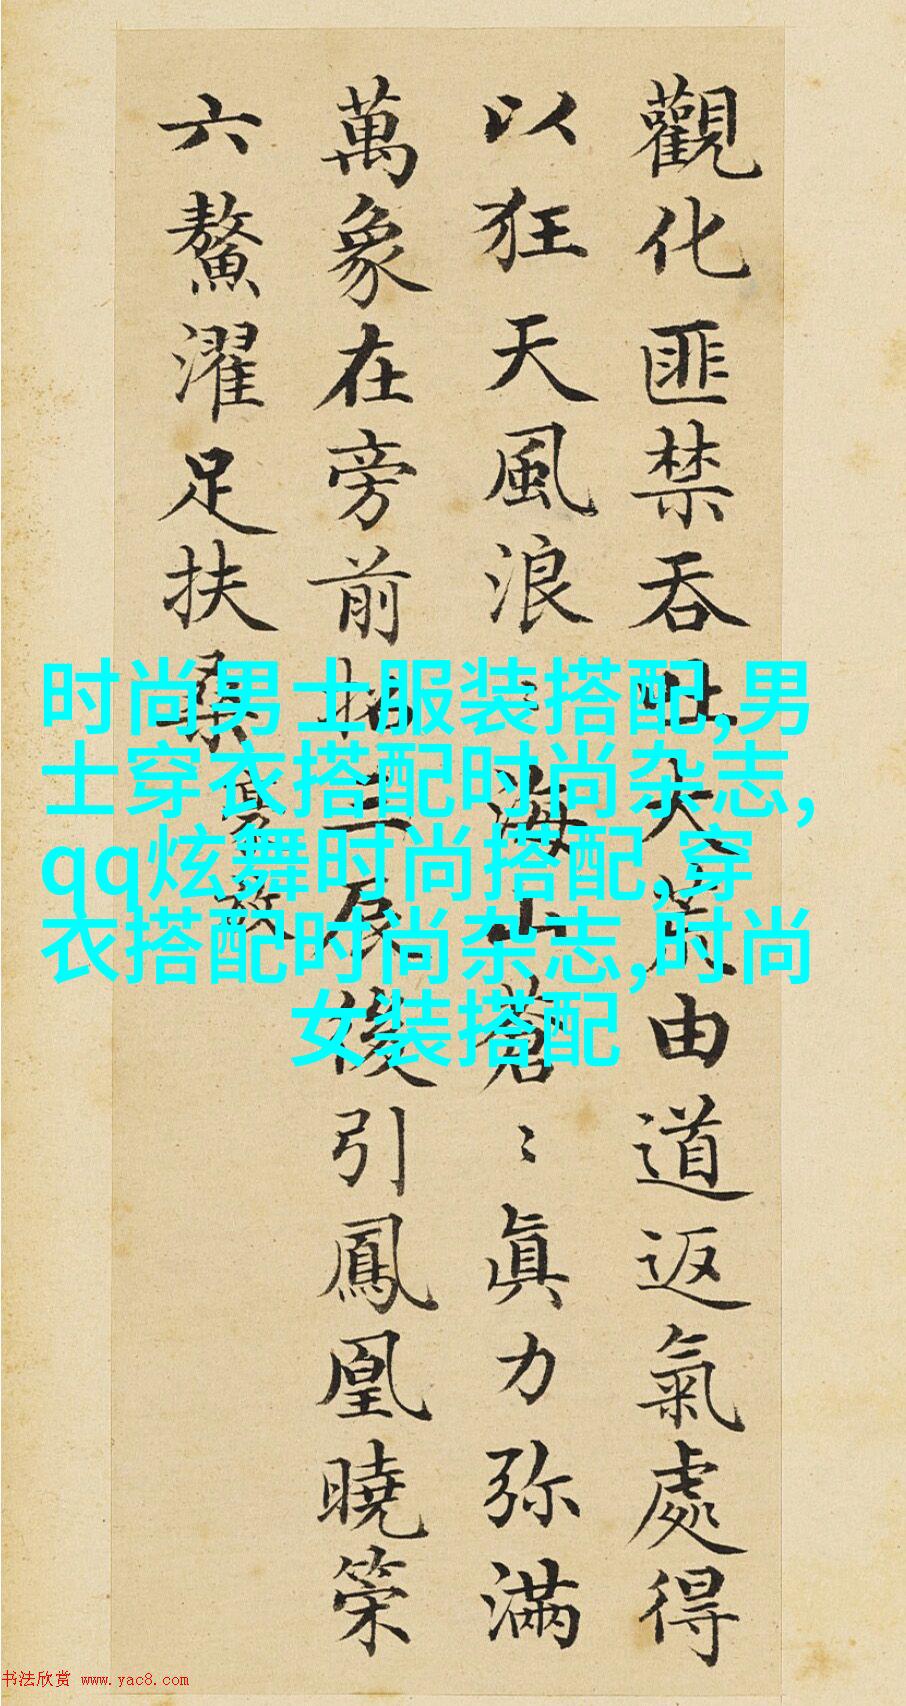 觀化匪禁吞 大荒由道返氣處得
以狂天風浪〻海山蒼〻真力弥滿
萬象在旁前招三辰後引鳳凰曉策
六鰲濯足扶桑
时尚男士服装搭配,男
士穿衣搭配时尚杂志,
qq炫舞时尚搭配,穿
衣搭配时尚杂志,时尚
女装搭配
书法欣赏 www.yac8.com